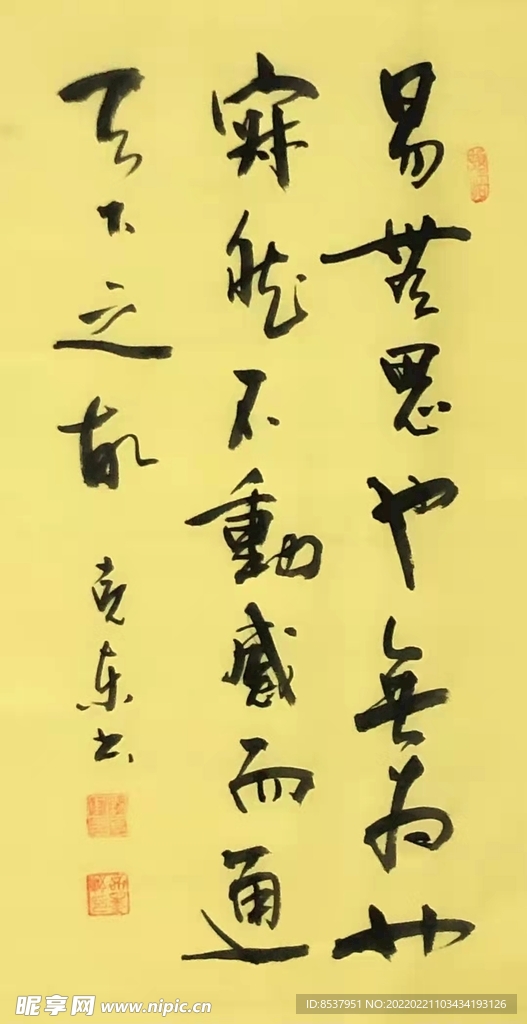 易無思也無為也
寂然不動感而通
天下之故
克東书
昵享网 www.nipic.cn
ID:8537951 NO:20220221103434193126